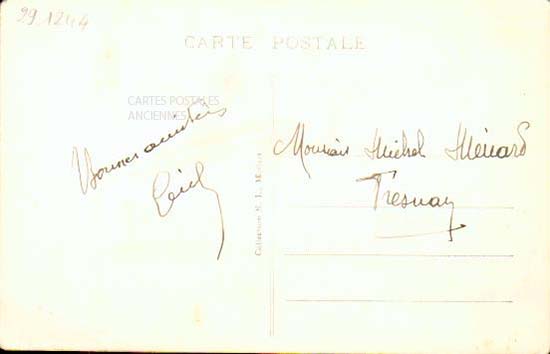 29.1244
CARTE POSTALE
CARTES POSTALES
ANCIENNES
Bonnes amitiés
Monsieur Michel Ménard
Tresnay
Collection